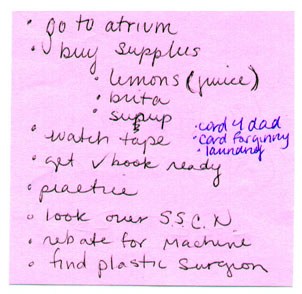 • go to atrium
• buy supplies
• lemons (juice)
• brita
• watch tape
• cord 4 dad
• card for ginny
• laundry
• get ✓book ready
• practice
• look over S.S.C.N.
• rebate for machine
• find plastic surgeon